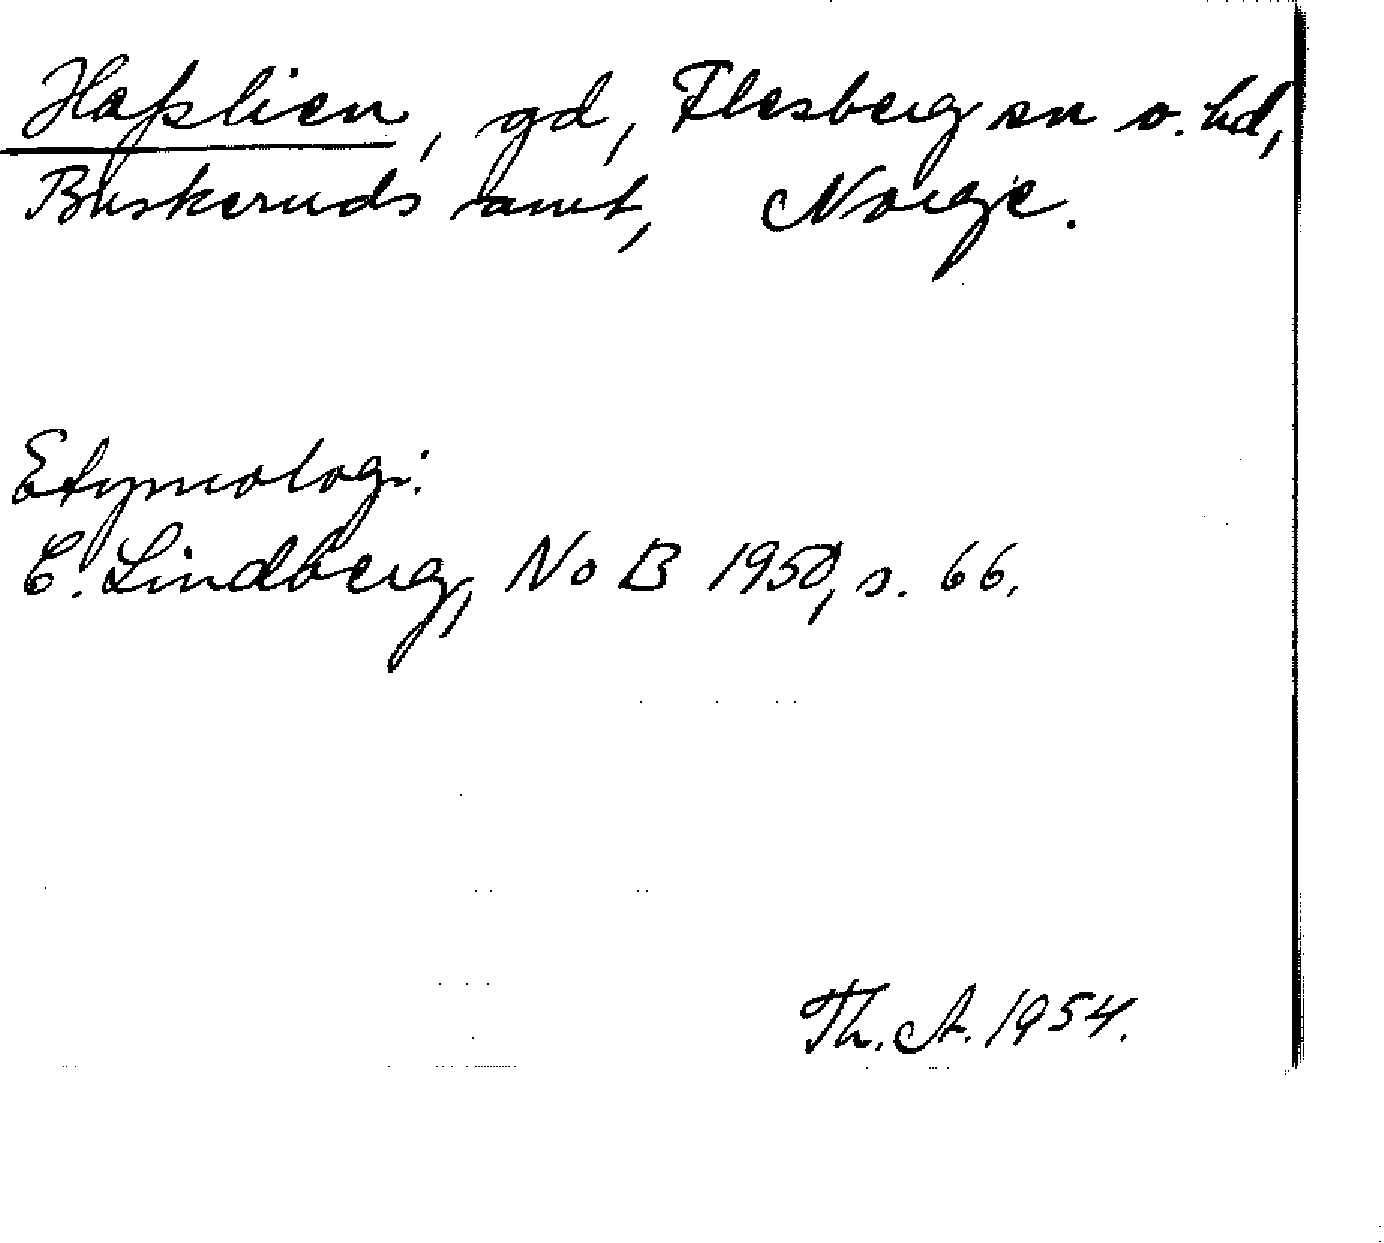 Hafslien, gd, Flesberg sn o. hd,
Buskeruds amt, Norge.
Etymologi:
C. Lindberg, NoB 1950, s. 66.
Th. A. 1954.